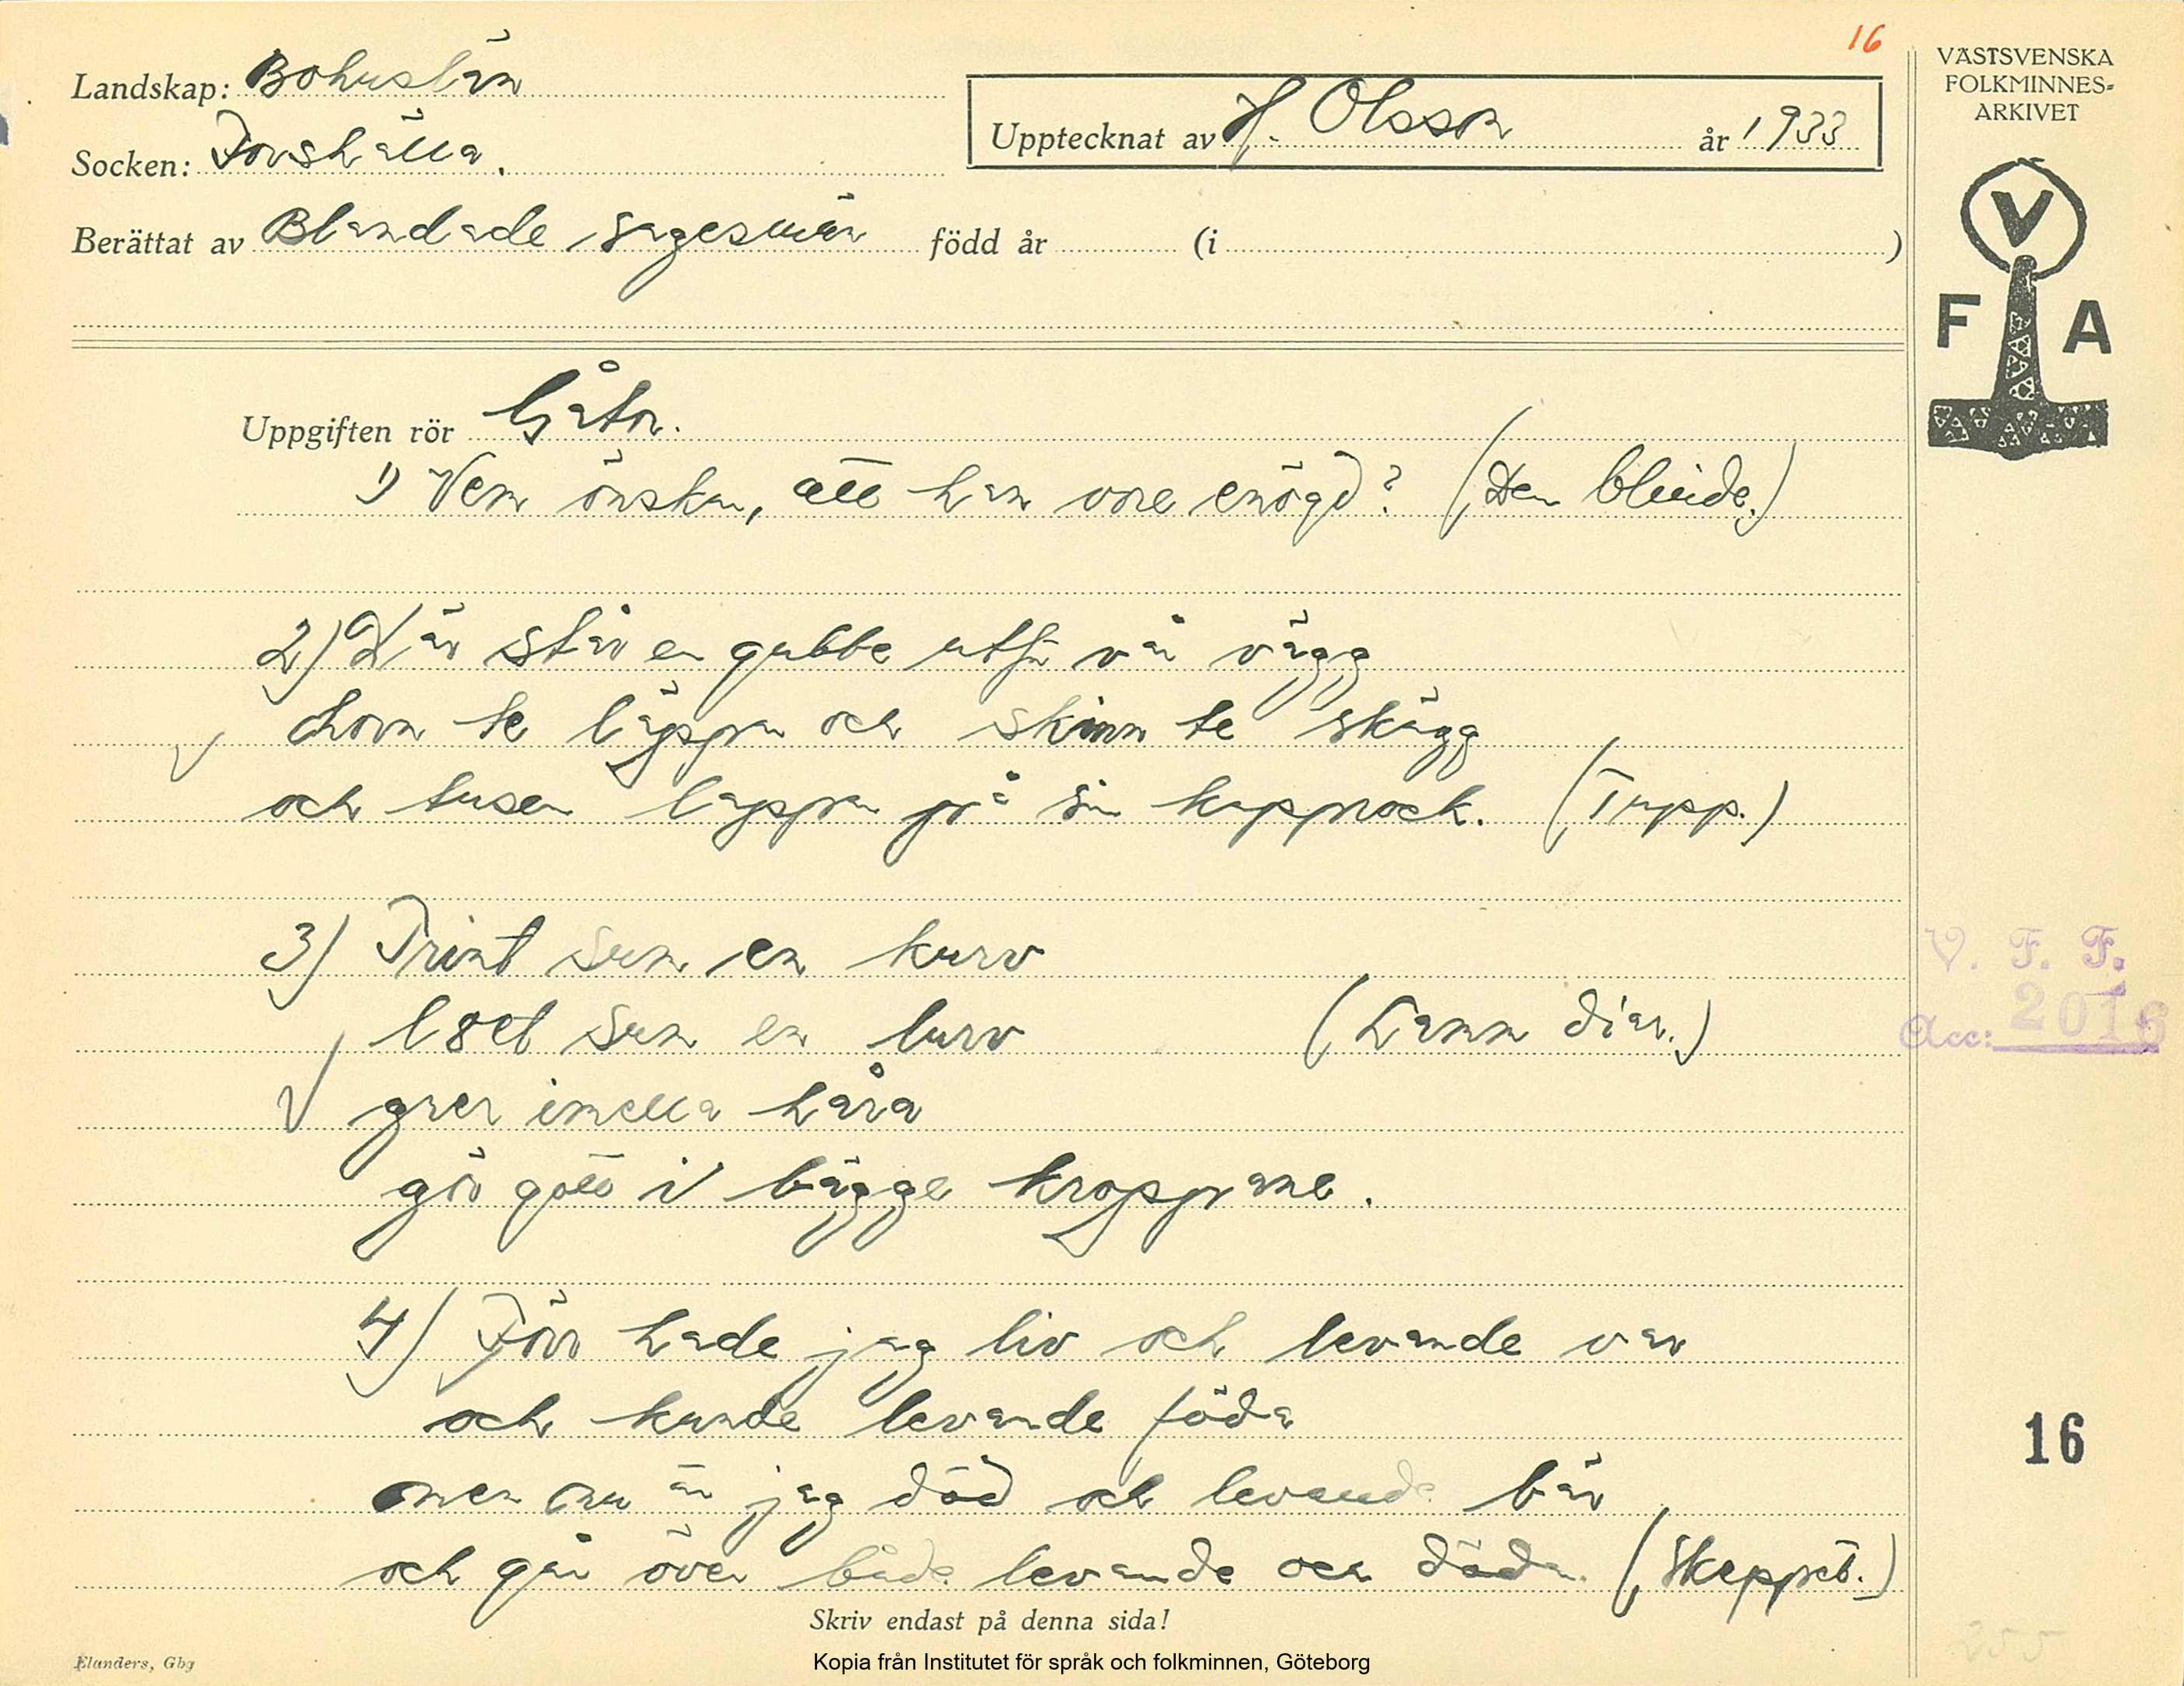 16
Landskap: Bohuslän
Socken: Forshälla.
Upptecknat av H. Olsson år 1933
Berättat av Blandade sagesmän född år (i )
VÄSTSVENSKA
FOLKMINNES-
ARKIVET
V
F A
Uppgiften rör Gåtor.
1) Vem önskar, att han vore enögd? (Den blinde.)
2) Där står en gubbe utför vår vägg
horn te läppar och skinn te skägg
och tusen lappar på sin kappråck. (Tupp.)
3) Trint sum en kurv
lået sum en lurv
grer imella låra
gör gott i bägge kroppane.
(Lamm diar.)
4) Förr hade jag liv och levande var
och kunde levande föda
men nu är jag död och levande bär
och går över både levande och döda. (Skeppet.)
V. F. F.
Acc: 2016
16
Skriv endast på denna sida!
Elanders, Gbg
Kopia från Institutet för språk och folkminnen, Göteborg